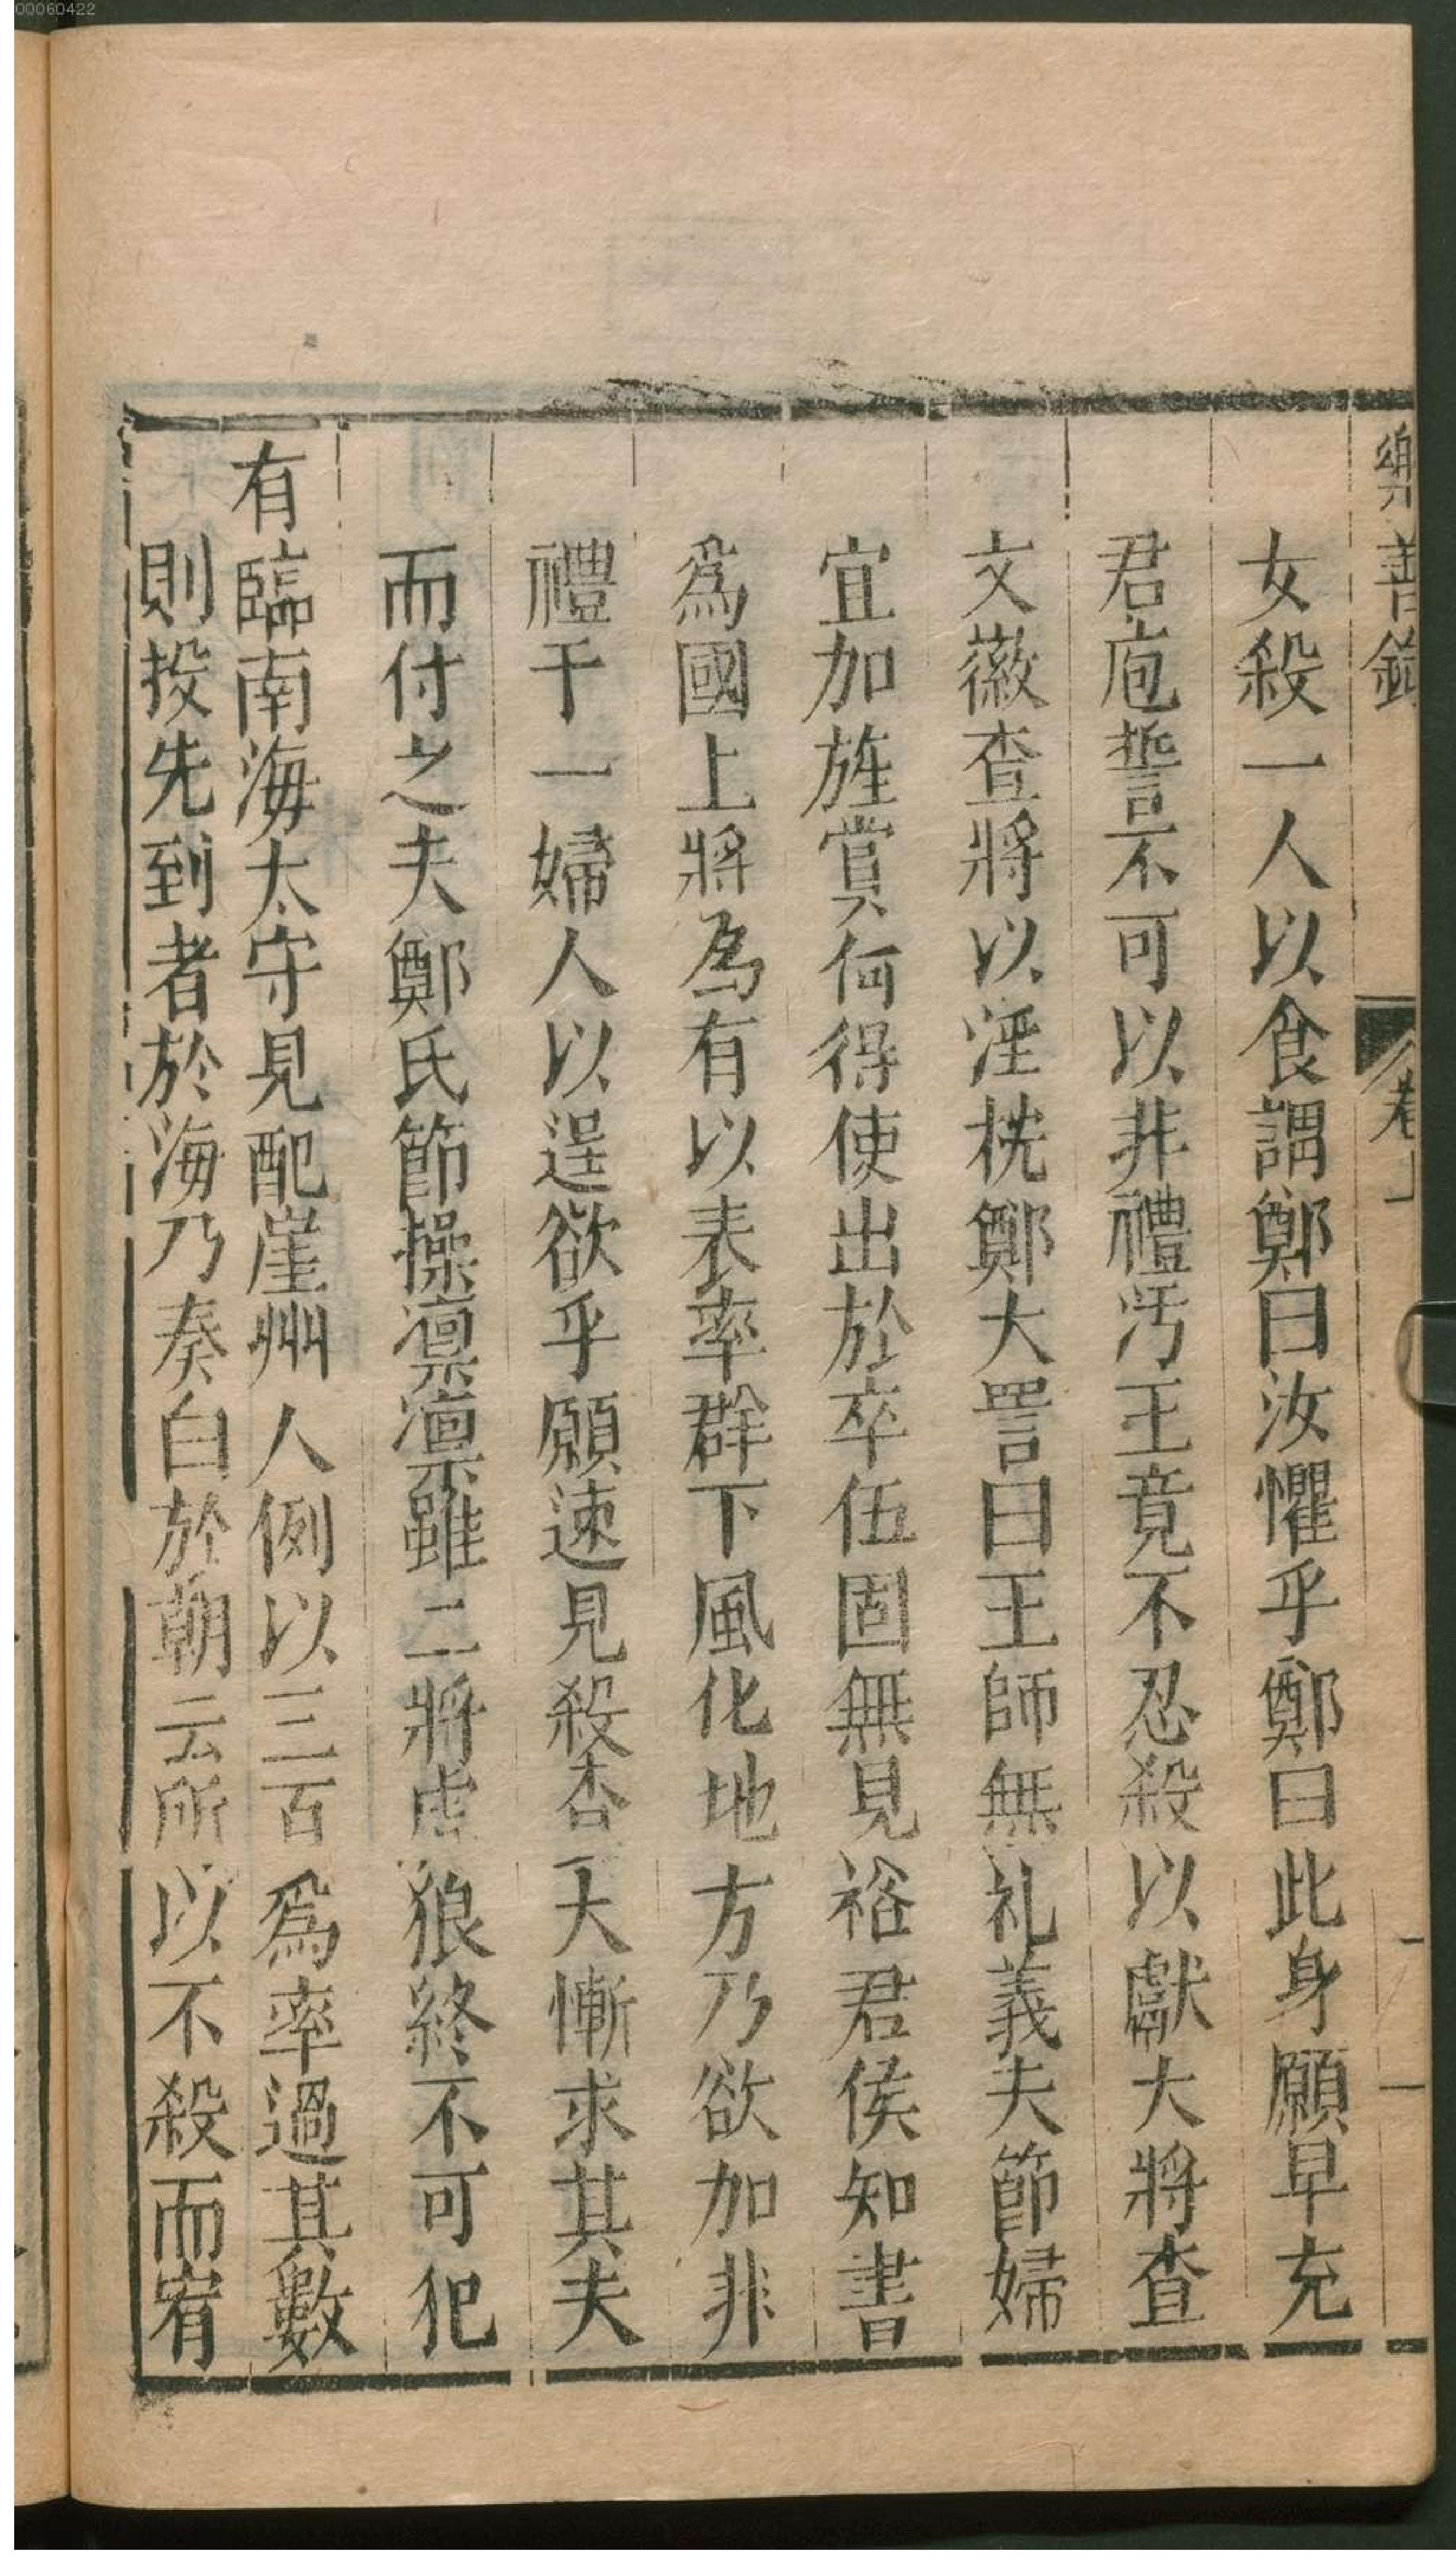 00060422
樂善錄
卷上
女殺一人以食謂鄭曰汝懼乎鄭曰此身願早充
君庖誓不可以非禮汚王竟不忍殺以獻大將查
文徽查將以淫桄鄭大詈曰王師無礼義夫節婦
宜加旌賞何得使出於卒伍固無見裕君侯知書
爲國上將為有以表率群下風化地方乃欲加非
禮于一婦人以逞欲乎願速見殺杳大慚求其夫
而付之夫鄭氏節操凛凛雖二將虎狼終不可犯
有臨南海太守見配崖州人例以三百爲率過其數
則投先到者於海乃奏白於朝云所以不殺而宥